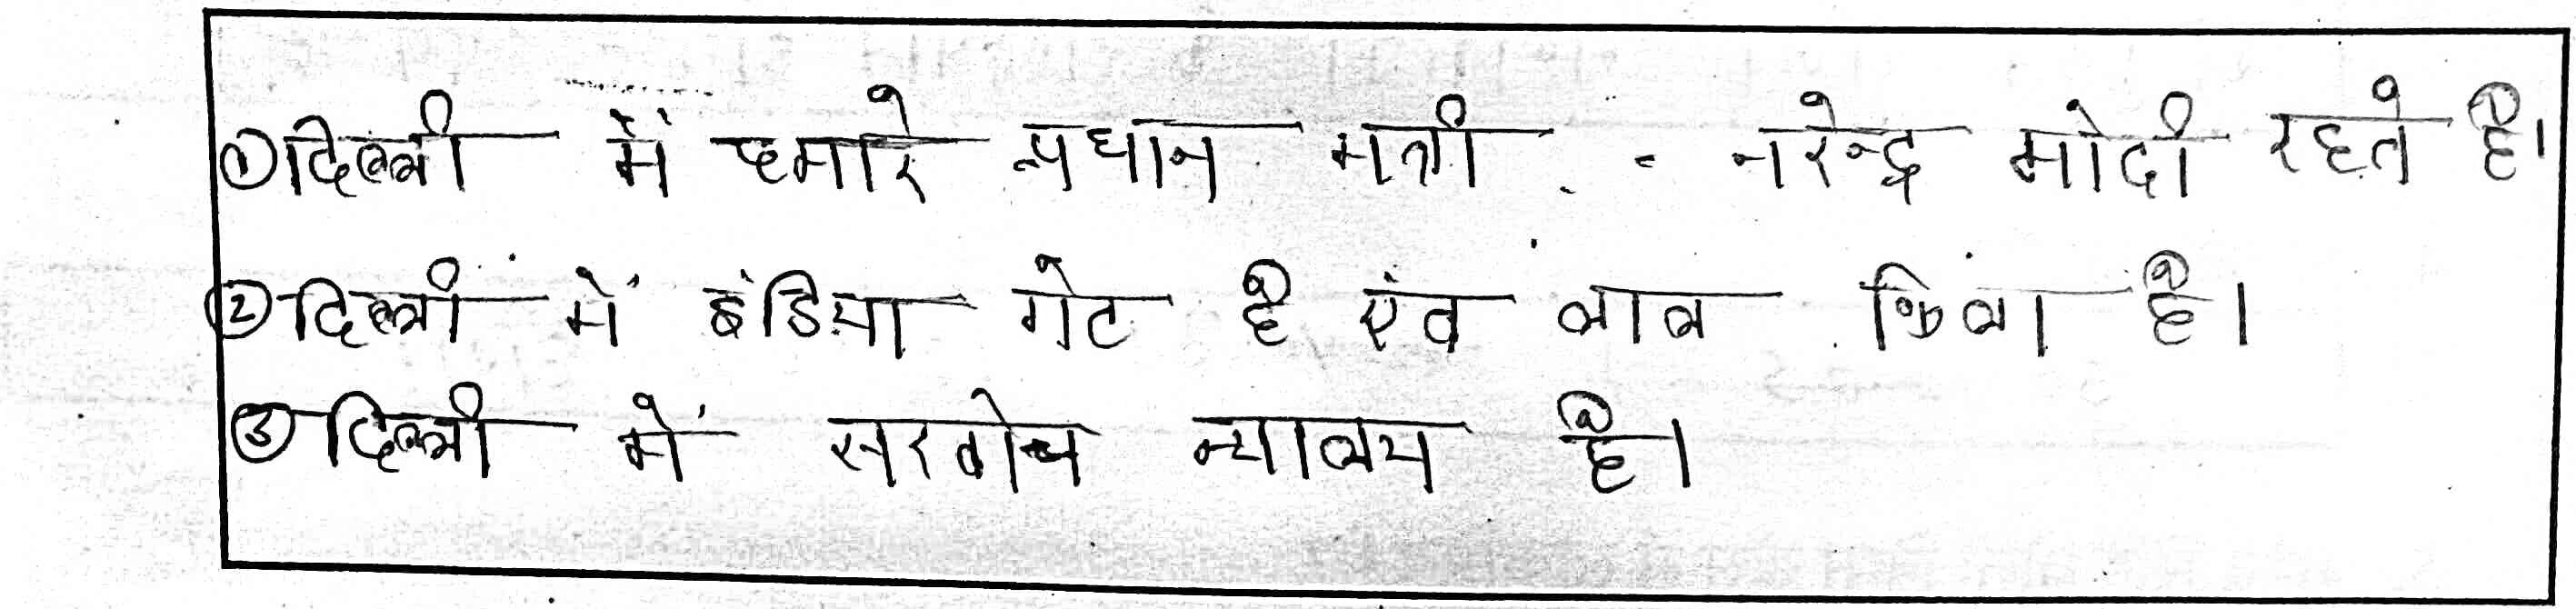 ①दिल्ली में हमारे प्रधान मत्री नरेन्द्र मोदी रहते है।
②दिल्ली में इंडिया गेट है एंव लाल किला है।
③दिल्ली में सरवोच न्यालय है।